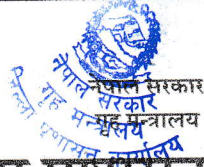 नेपाल सरकार
गृह मन्त्रालय
नेपाल सरकार
गृह मन्त्रालय
जिल्ला प्रशासन कार्यालय